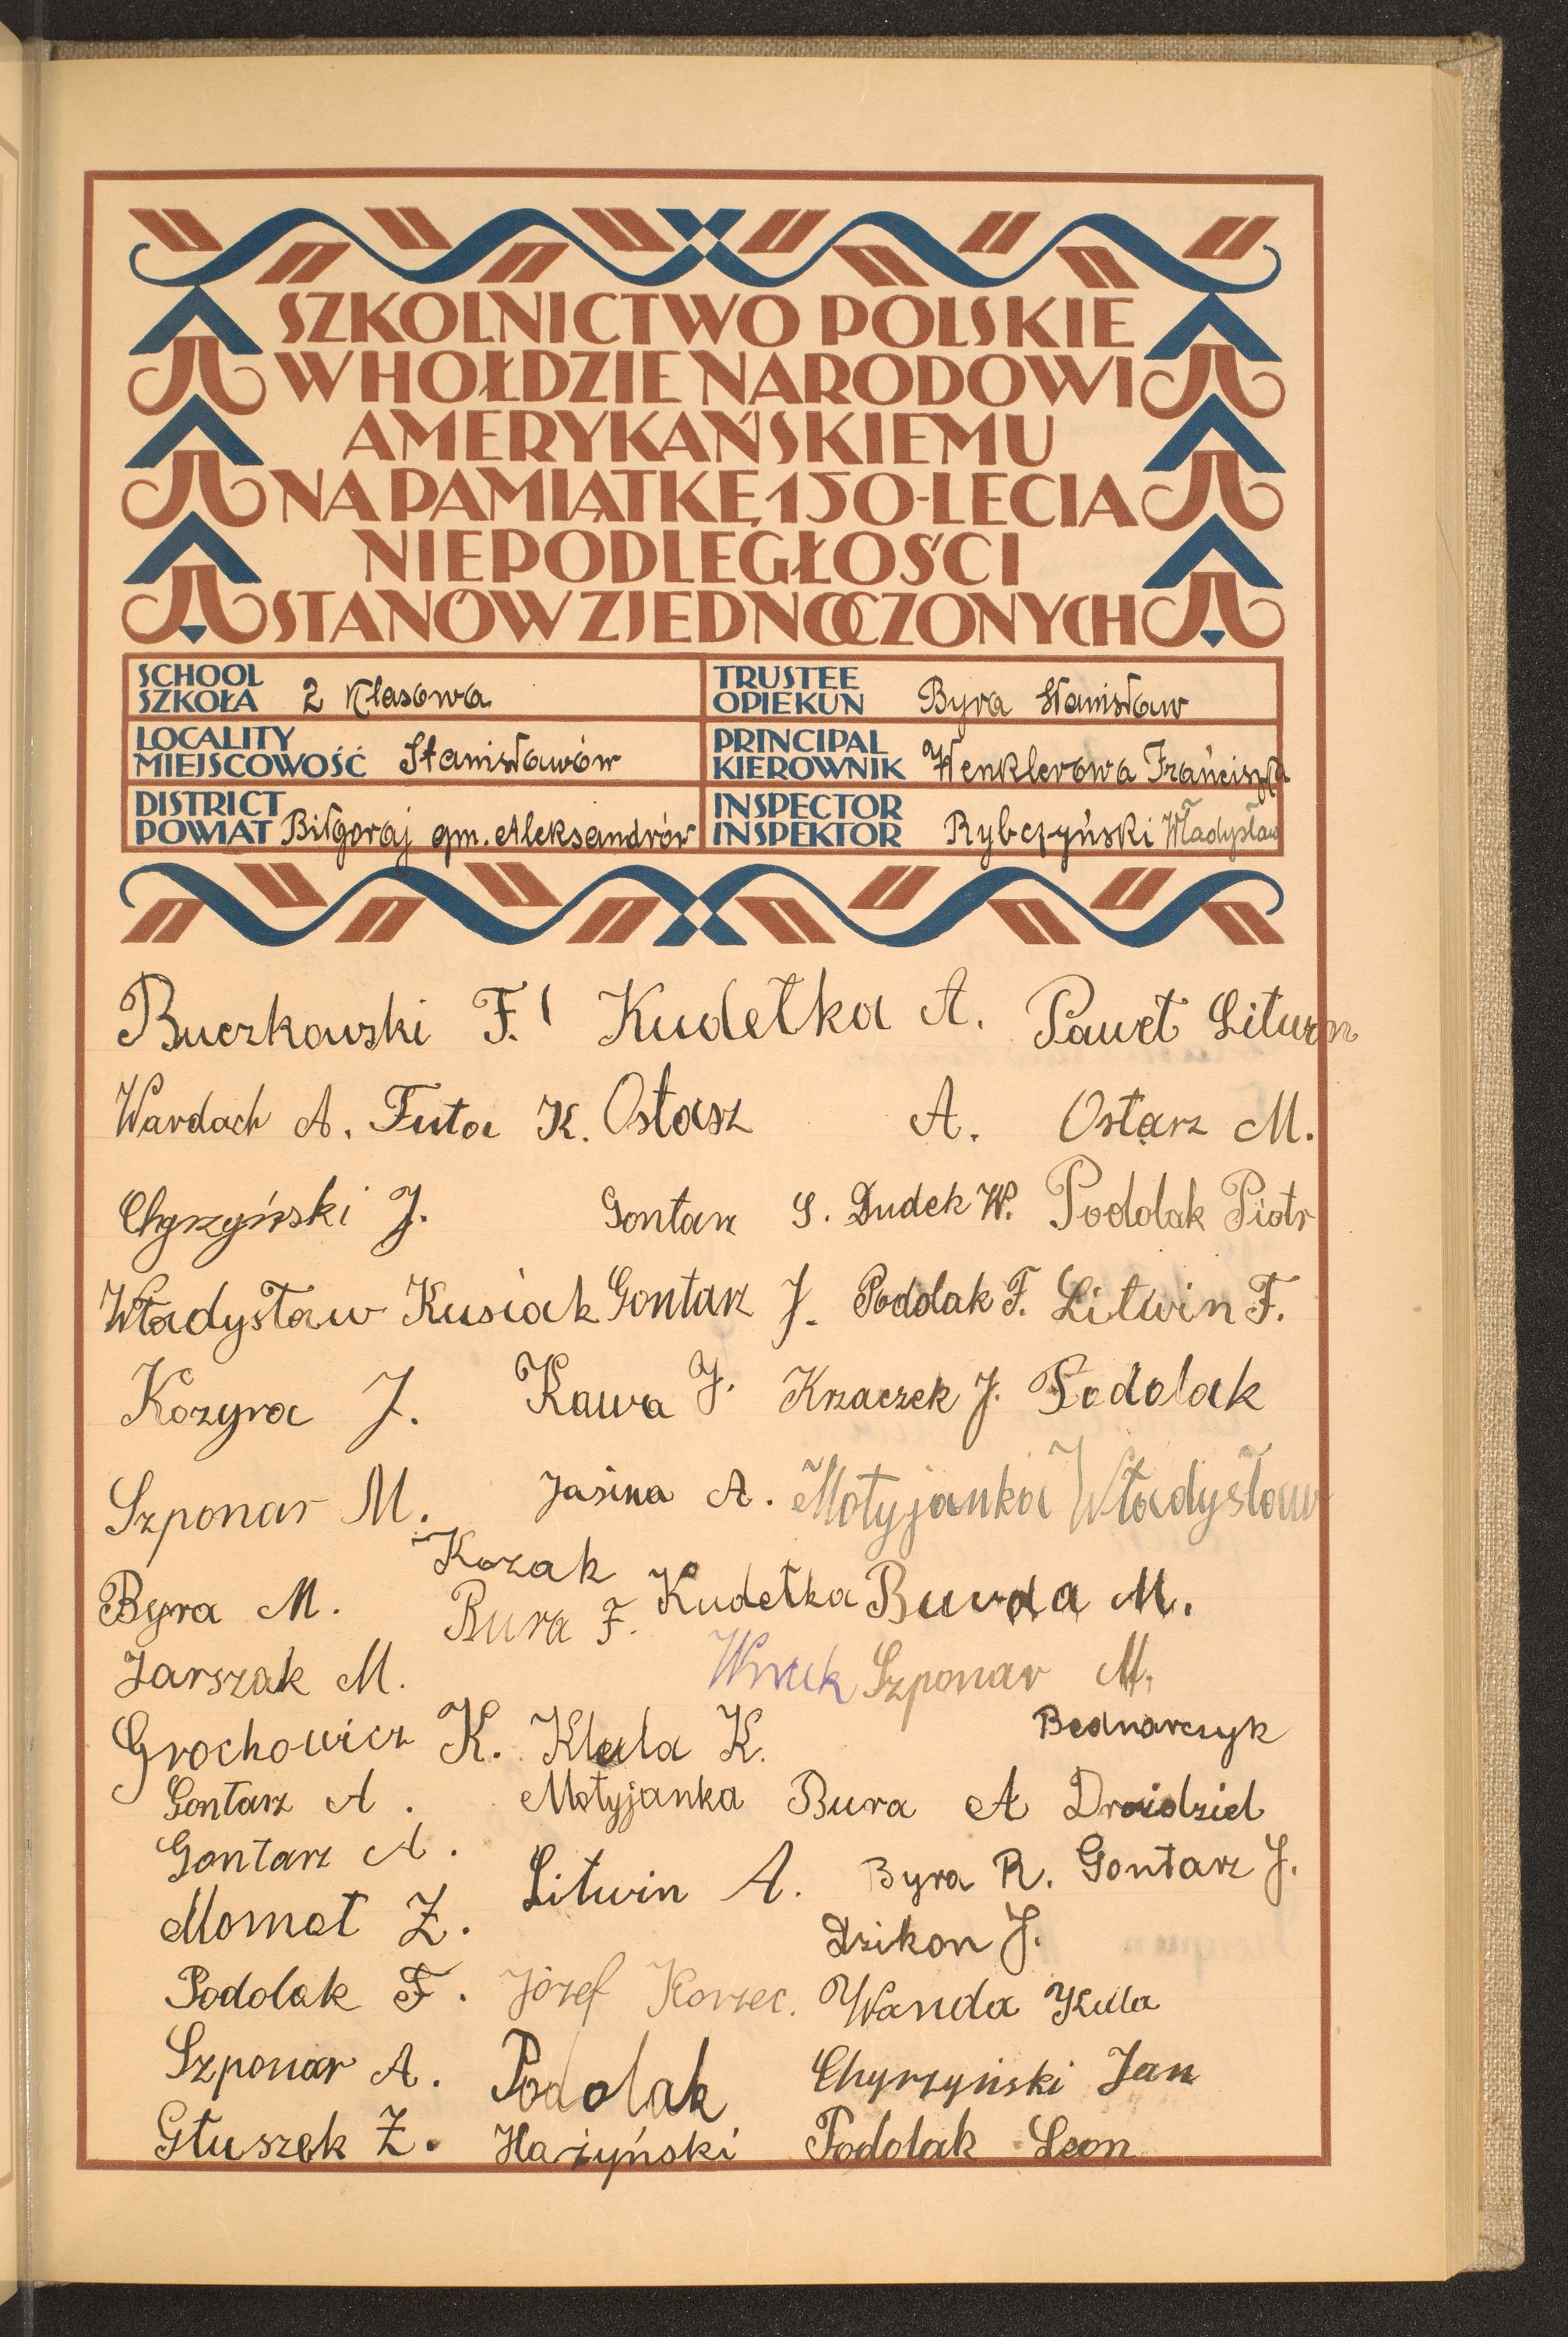 SZKOLNICTWO POLSKIE
W HOŁDZIE NARODOWI
AMERYKAŃSKIEMU
NA PAMIĄTKĘ 150-LECIA
NIEPODLEGŁOŚCI
STANÓW ZJEDNOCZONYCH
SCHOOL
SZKOŁA 2 Klasowa
TRUSTEE
OPIEKUN Byra Stanisław
LOCALITY
MIEJSCOWOŚĆ Stanisławów
PRINCIPAL
KIEROWNIK Wenklerowa Franciszka
DISTRICT
POWIAT Biłgoraj gm. Aleksandrów
INSPECTOR
INSPEKTOR Rybczyński Władysław
Buczkowski F. Kudełka A. Paweł Liturn
Wardach A. Futa K. Ostasz A. Ostarz M.
Chyrzyński J. Gontarz S. Dudek W. Podolak Piotr
Władysław Kusiak Gontarz J. Podolak F. Litwin F.
Kozyra J. Kawa J. Krzaczek J. Podolak
Szponar M. Jasina A. Motyjanka Władysław
Kozak
Byra M. Bura F. Kudełka Burda M.
Jarszak M. Wnuk Szponar M.
Grochowicz K. Klula K. Bednarczyk
Gontarz A. Motyjanka Bura A Droździel
Gontarz A. Litwin A. Byra R. Gontarz J.
Momot Z. Dzikon J.
Podolak F. Józef Korzec. Wanda Kula
Szponar A. Podolak Chyrzyński Jan
Głuszek Z. Hażyński Podolak Leon